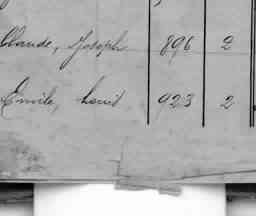 Claude, Joseph 896 2
Emile, Louis 923 2